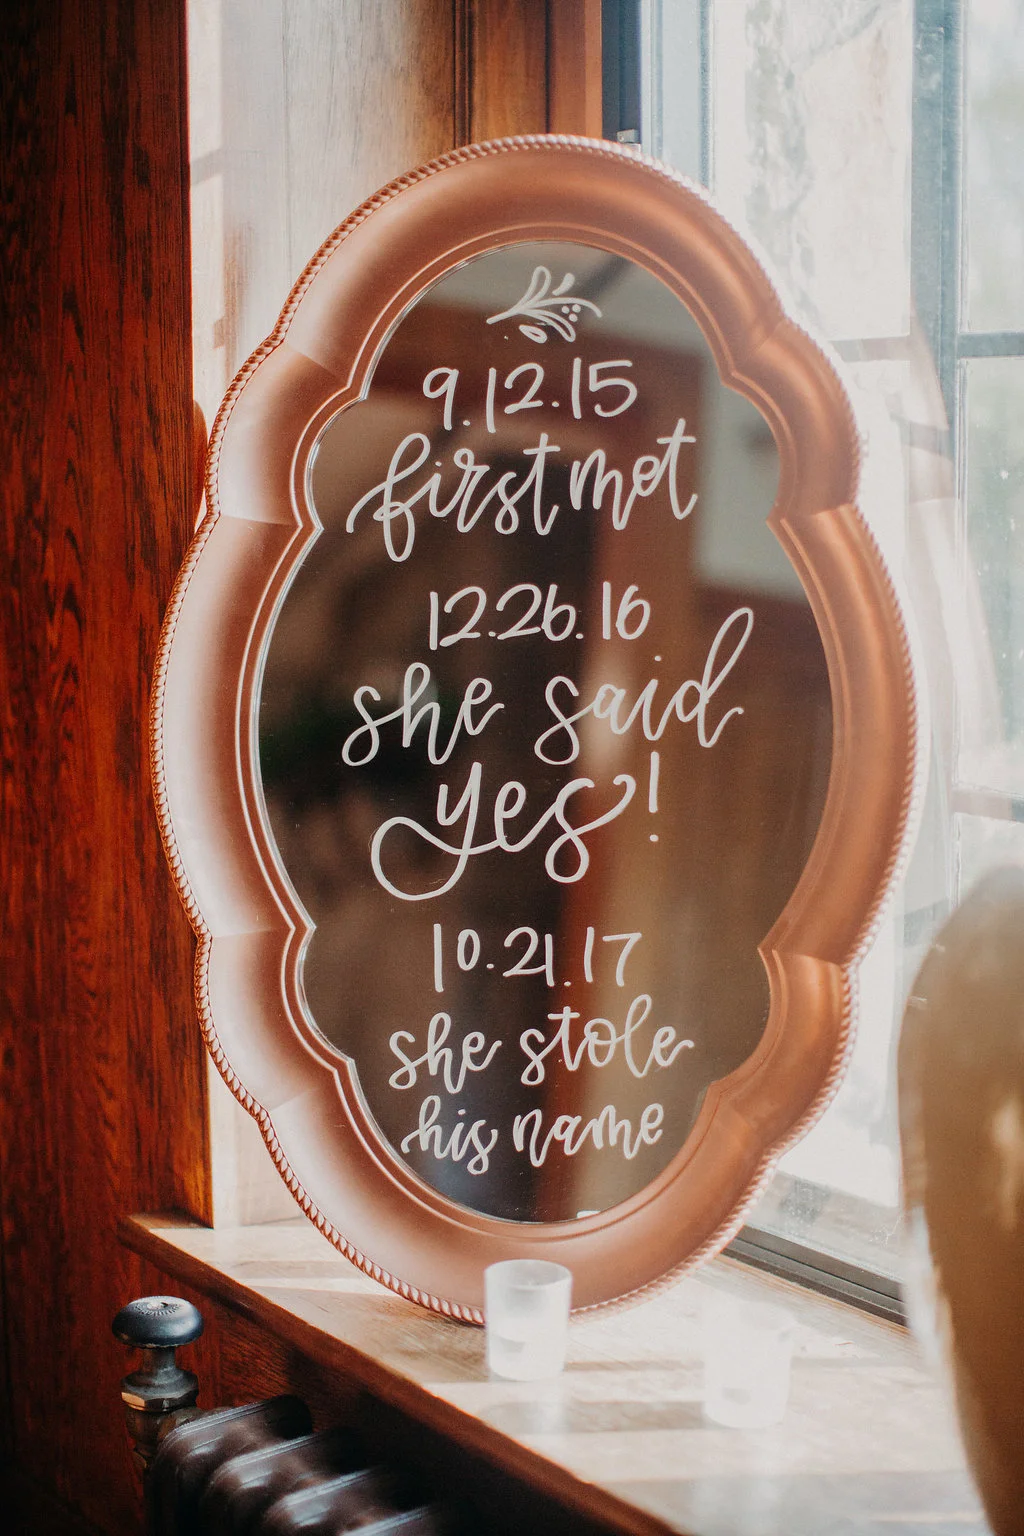 9.12.15
first met
12.26.16
she said
yes!
10.21.17
she stole
his name